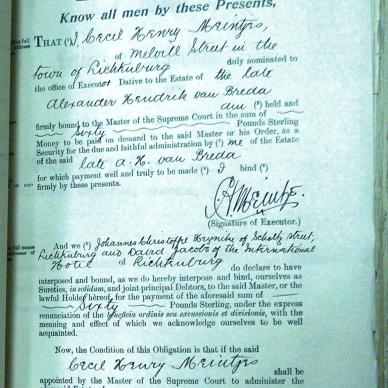 Know all men by these Presents,
THAT (¹) I, Cecil Henry Meintjes,
of Melvill Street in the
town of Lichtenburg duly nominated to
the office of Executor Dative to the Estate of the late
Alexander Hendrik van Breda
am (²) held and
firmly bound to the Master of the Supreme Court in the sum of
Sixty Pounds Sterling
Money to be paid on demand to the said Master or his Order, as a
Security for the due and faithful administration by (³) me of the Estate
of the said late A. H. van Breda
for which payment well and truly to be made (⁴) I bind (⁵)
firmly by these presents.
C. H. Meintjes
(Signature of Executor.)
And we (⁶) Johannes Christoffel of Scholtz street,
Lichtenburg and David Jacobs of the International
Hotel of Lichtenburg
do declare to have
interposed and bound, as we do hereby interpose and bind, ourselves as
Sureties, in solidum, and joint principal Debtors, to the said Master, or the
lawful Holder hereof, for the payment of the aforesaid sum of
Sixty Pounds Sterling, under the express
renunciation of the beneficia ordinis seu excussionis et divisionis, with the
meaning and effect of which we acknowledge ourselves to be well
acquainted.
Now, the Condition of this Obligation is that if the said
Cecil Henry Meintjes
shall be
appointed by the Master of the Supreme Court to administer the